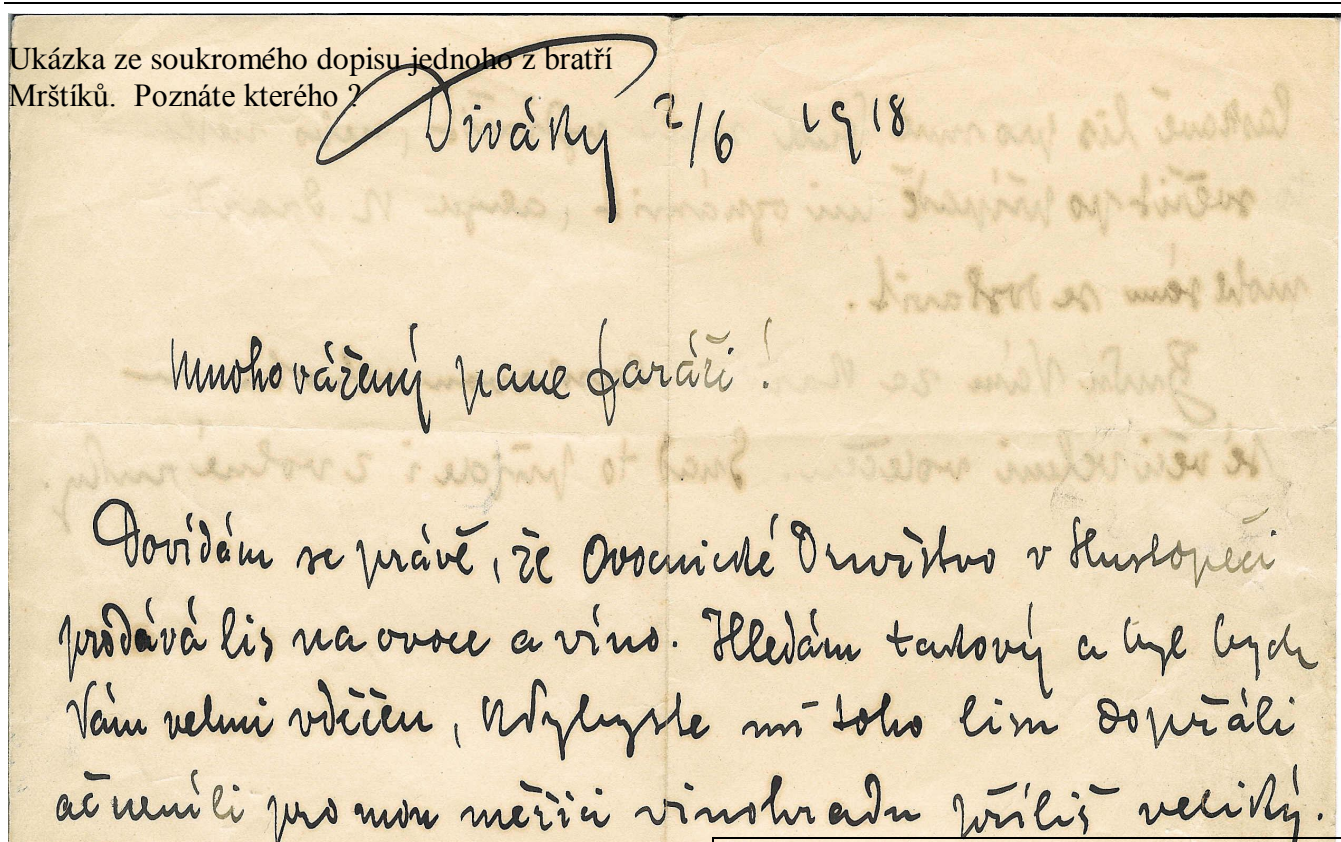 Ukázka ze soukromého dopisu jednoho z bratří
Mrštíků. Poznáte kterého ?
Diváky 2/6 1918
Mnohovážený pane faráři!
Dovídám se právě, že Ovocnické Družstvo v Hustopeči
prodává lis na ovoce a víno. Hledám takový a byl bych
Vám velmi vděčen, kdybyste mi toho lisu dopřáli
ač neníli pro mou měřici vinohradu příliš veliký.